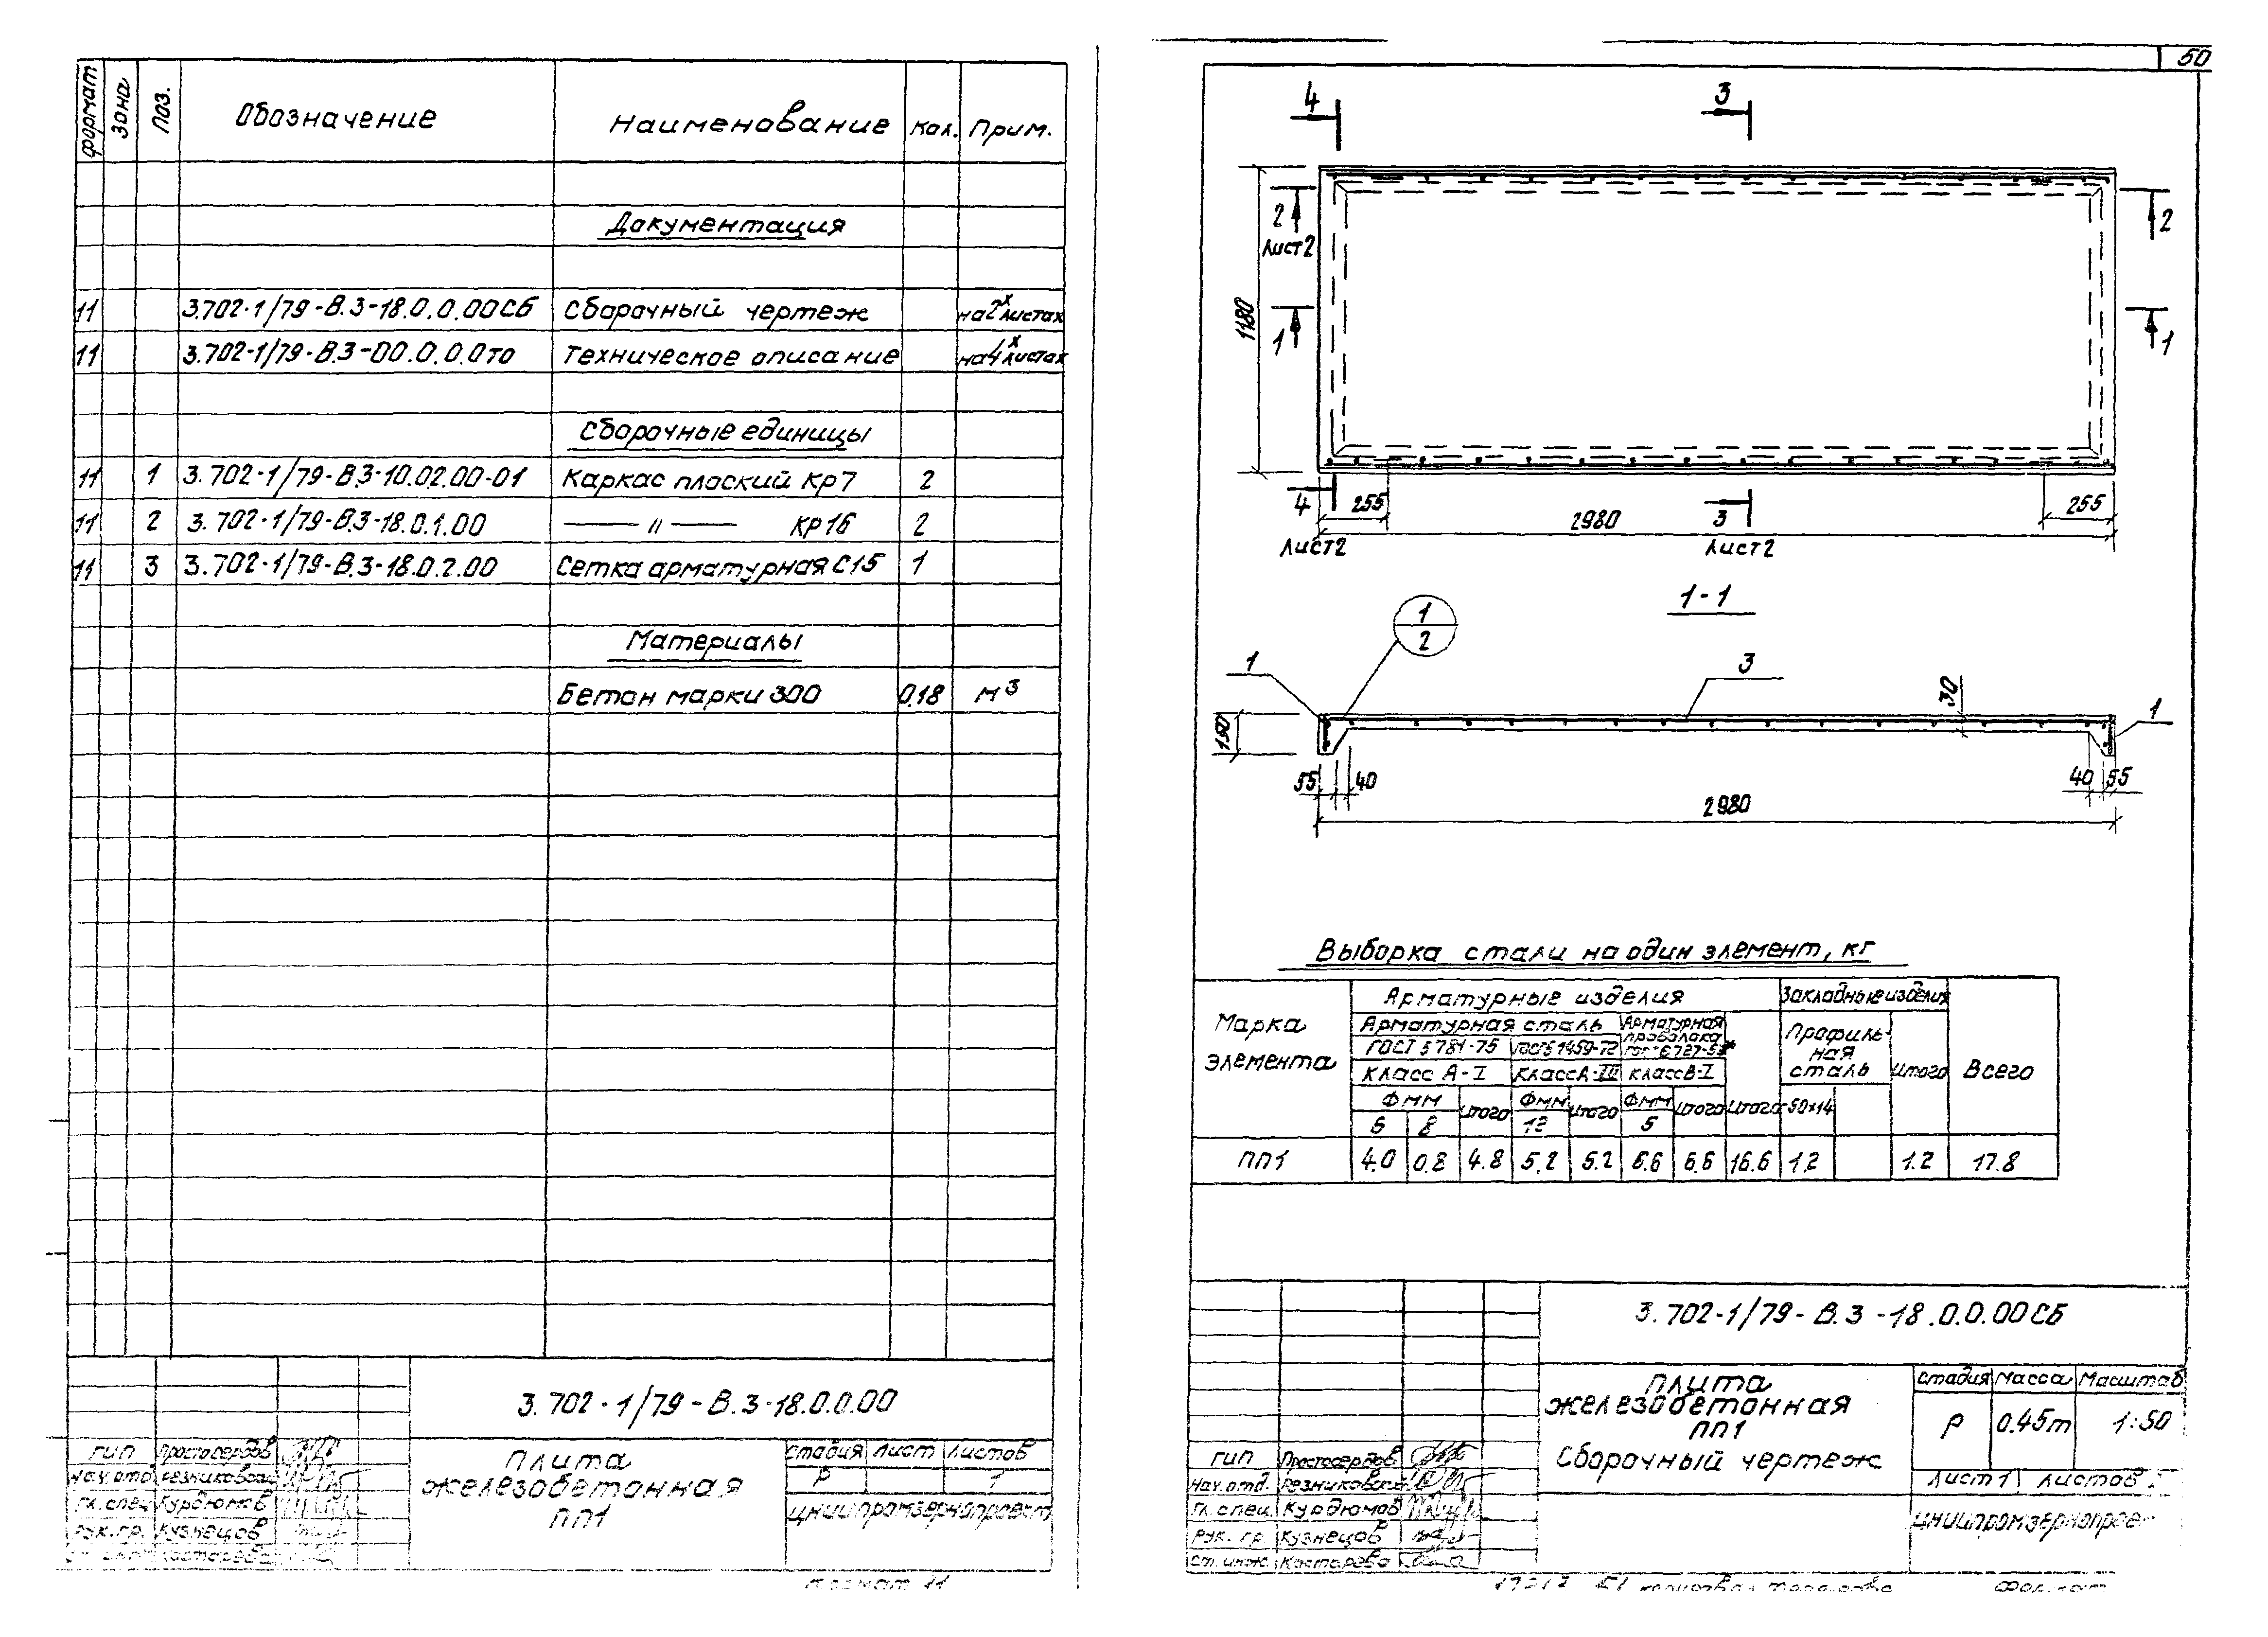 формат зона поз. Обозначение Наименование Кол. Прим.
Документация
11 3.702-1/79-В.3-18.0.0.00СБ Сборочный чертеж на 2х листах
11 3.702-1/79-В.3-00.0.0.0ТО Техническое описание на 4х листах
Сборочные единицы
11 1 3.702-1/79-В.3-10.02.00-01 Каркас плоский Кр7 2
11 2 3.702-1/79-В.3-18.0.1.00 —— 〃 —— Кр16 2
11 3 3.702-1/79-В.3-18.0.2.00 Сетка арматурная С15 1
Материалы
Бетон марки 300 0.18 м³
3.702-1/79-В.3-18.0.0.00
гип Простосердов
Нач.отд. Резниковская
Гл.спец Курдюмов
Рук.гр. Кузнецов
Костарева
плита
железобетонная
ПП1
стадия лист листов
Р
ЦНИИпромзернопроект
формат 11
50
4 3
2 2
Лист2
1180
1 1
4 255 2980 3 255
Лист2 Лист2
1-1
1
2
1 3 30 1
150
55 40 40 55
2980
Выборка стали на один элемент, кг
Марка элемента
Арматурные изделия Закладные изделия
Арматурная сталь Арматурная проволока Профильная сталь итого Всего
ГОСТ 5781-75 ГОСТ 5.1459-72 ГОСТ 6727-53*
Класс А-I Класс А-III Класс В-I
Фмм итого Фмм итого Фмм итого итого 50х14
6 8 12 5
ПП1 4.0 0.8 4.8 5.2 5.2 6.6 6.6 16.6 1.2 1.2 17.8
3.702-1/79-В.3-18.0.0.00СБ
плита
железобетонная
ПП1
Сборочный чертеж
стадия Масса Масштаб
Р 0.45т 1:50
Лист 1 Листов
ЦНИИпромзернопроек
гип Простосердов
Нач.отд. Резниковская
Гл.спец. Курдюмов
Рук.гр. Кузнецов
Ст.инж. Костарева
Формат